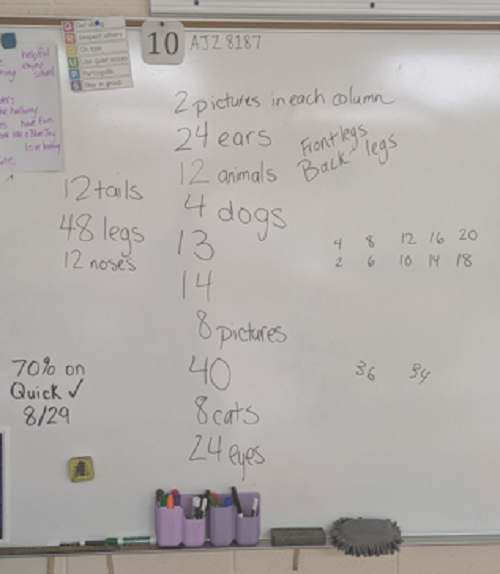 helpful
enjoy
school
have fun
Get along
Respect others
On task
Use quiet voices
Participate
Stay in group
10
AJZ 8187
2 pictures in each column
24 ears
12 animals
4 dogs
13
14
8 pictures
40
8 cats
24 eyes
Front legs
Back legs
12 tails
48 legs
12 noses
4 8 12 16 20
2 6 10 14 18
36 34
70% on
Quick ✓
8/29